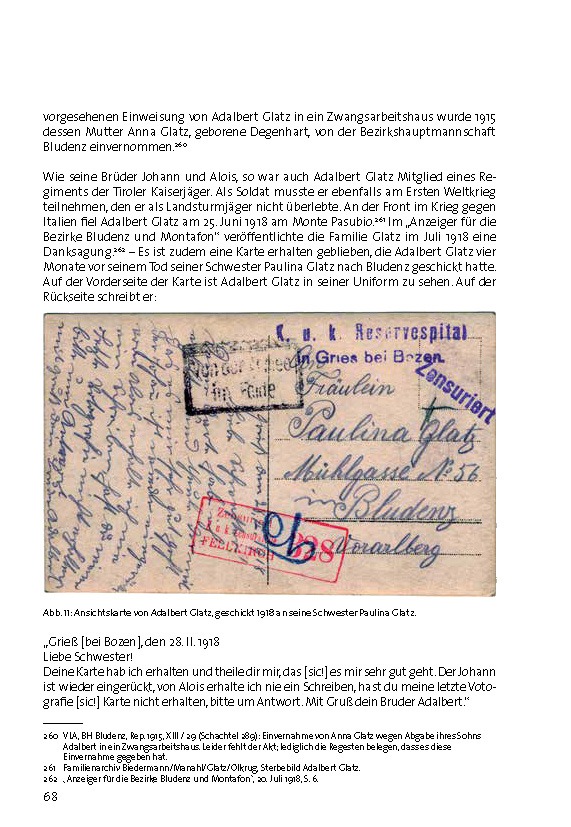 vorgesehenen Einweisung von Adalbert Glatz in ein Zwangsarbeitshaus wurde 1915
dessen Mutter Anna Glatz, geborene Degenhart, von der Bezirkshauptmannschaft
Bludenz einvernommen.²⁶⁰
Wie seine Brüder Johann und Alois, so war auch Adalbert Glatz Mitglied eines Re-
giments der Tiroler Kaiserjäger. Als Soldat musste er ebenfalls am Ersten Weltkrieg
teilnehmen, den er als Landsturmjäger nicht überlebte. An der Front im Krieg gegen
Italien fiel Adalbert Glatz am 25. Juni 1918 am Monte Pasubio.²⁶¹ Im „Anzeiger für die
Bezirke Bludenz und Montafon“ veröffentlichte die Familie Glatz im Juli 1918 eine
Danksagung.²⁶² – Es ist zudem eine Karte erhalten geblieben, die Adalbert Glatz vier
Monate vor seinem Tod seiner Schwester Paulina Glatz nach Bludenz geschickt hatte.
Auf der Vorderseite der Karte ist Adalbert Glatz in seiner Uniform zu sehen. Auf der
Rückseite schreibt er:
K. u. k. Reservespital
in Gries bei Bozen.
Zensuriert
Fräulein
Paulina Glatz
Mühlgasse No 56
Bludenz
Vorarlberg
FELDKIRCH
328
Abb. 11: Ansichtskarte von Adalbert Glatz, geschickt 1918 an seine Schwester Paulina Glatz.
„Grieß [bei Bozen], den 28. II. 1918
Liebe Schwester!
Deine Karte hab ich erhalten und theile dir mir, das [sic!] es mir sehr gut geht. Der Johann
ist wieder eingerückt, von Alois erhalte ich nie ein Schreiben, hast du meine letzte Voto-
grafie [sic!] Karte nicht erhalten, bitte um Antwort. Mit Gruß dein Bruder Adalbert.“
260 VLA, BH Bludenz, Rep. 1915, XIII / 29 (Schachtel 289): Einvernahme von Anna Glatz wegen Abgabe ihres Sohns
Adalbert in ein Zwangsarbeitshaus. Leider fehlt der Akt; lediglich die Regesten belegen, dass es diese
Einvernahme gegeben hat.
261 Familienarchiv Biedermann/Manahl/Glatz/Olkrug, Sterbebild Adalbert Glatz.
262 „Anzeiger für die Bezirke Bludenz und Montafon“, 20. Juli 1918, S. 6.
68